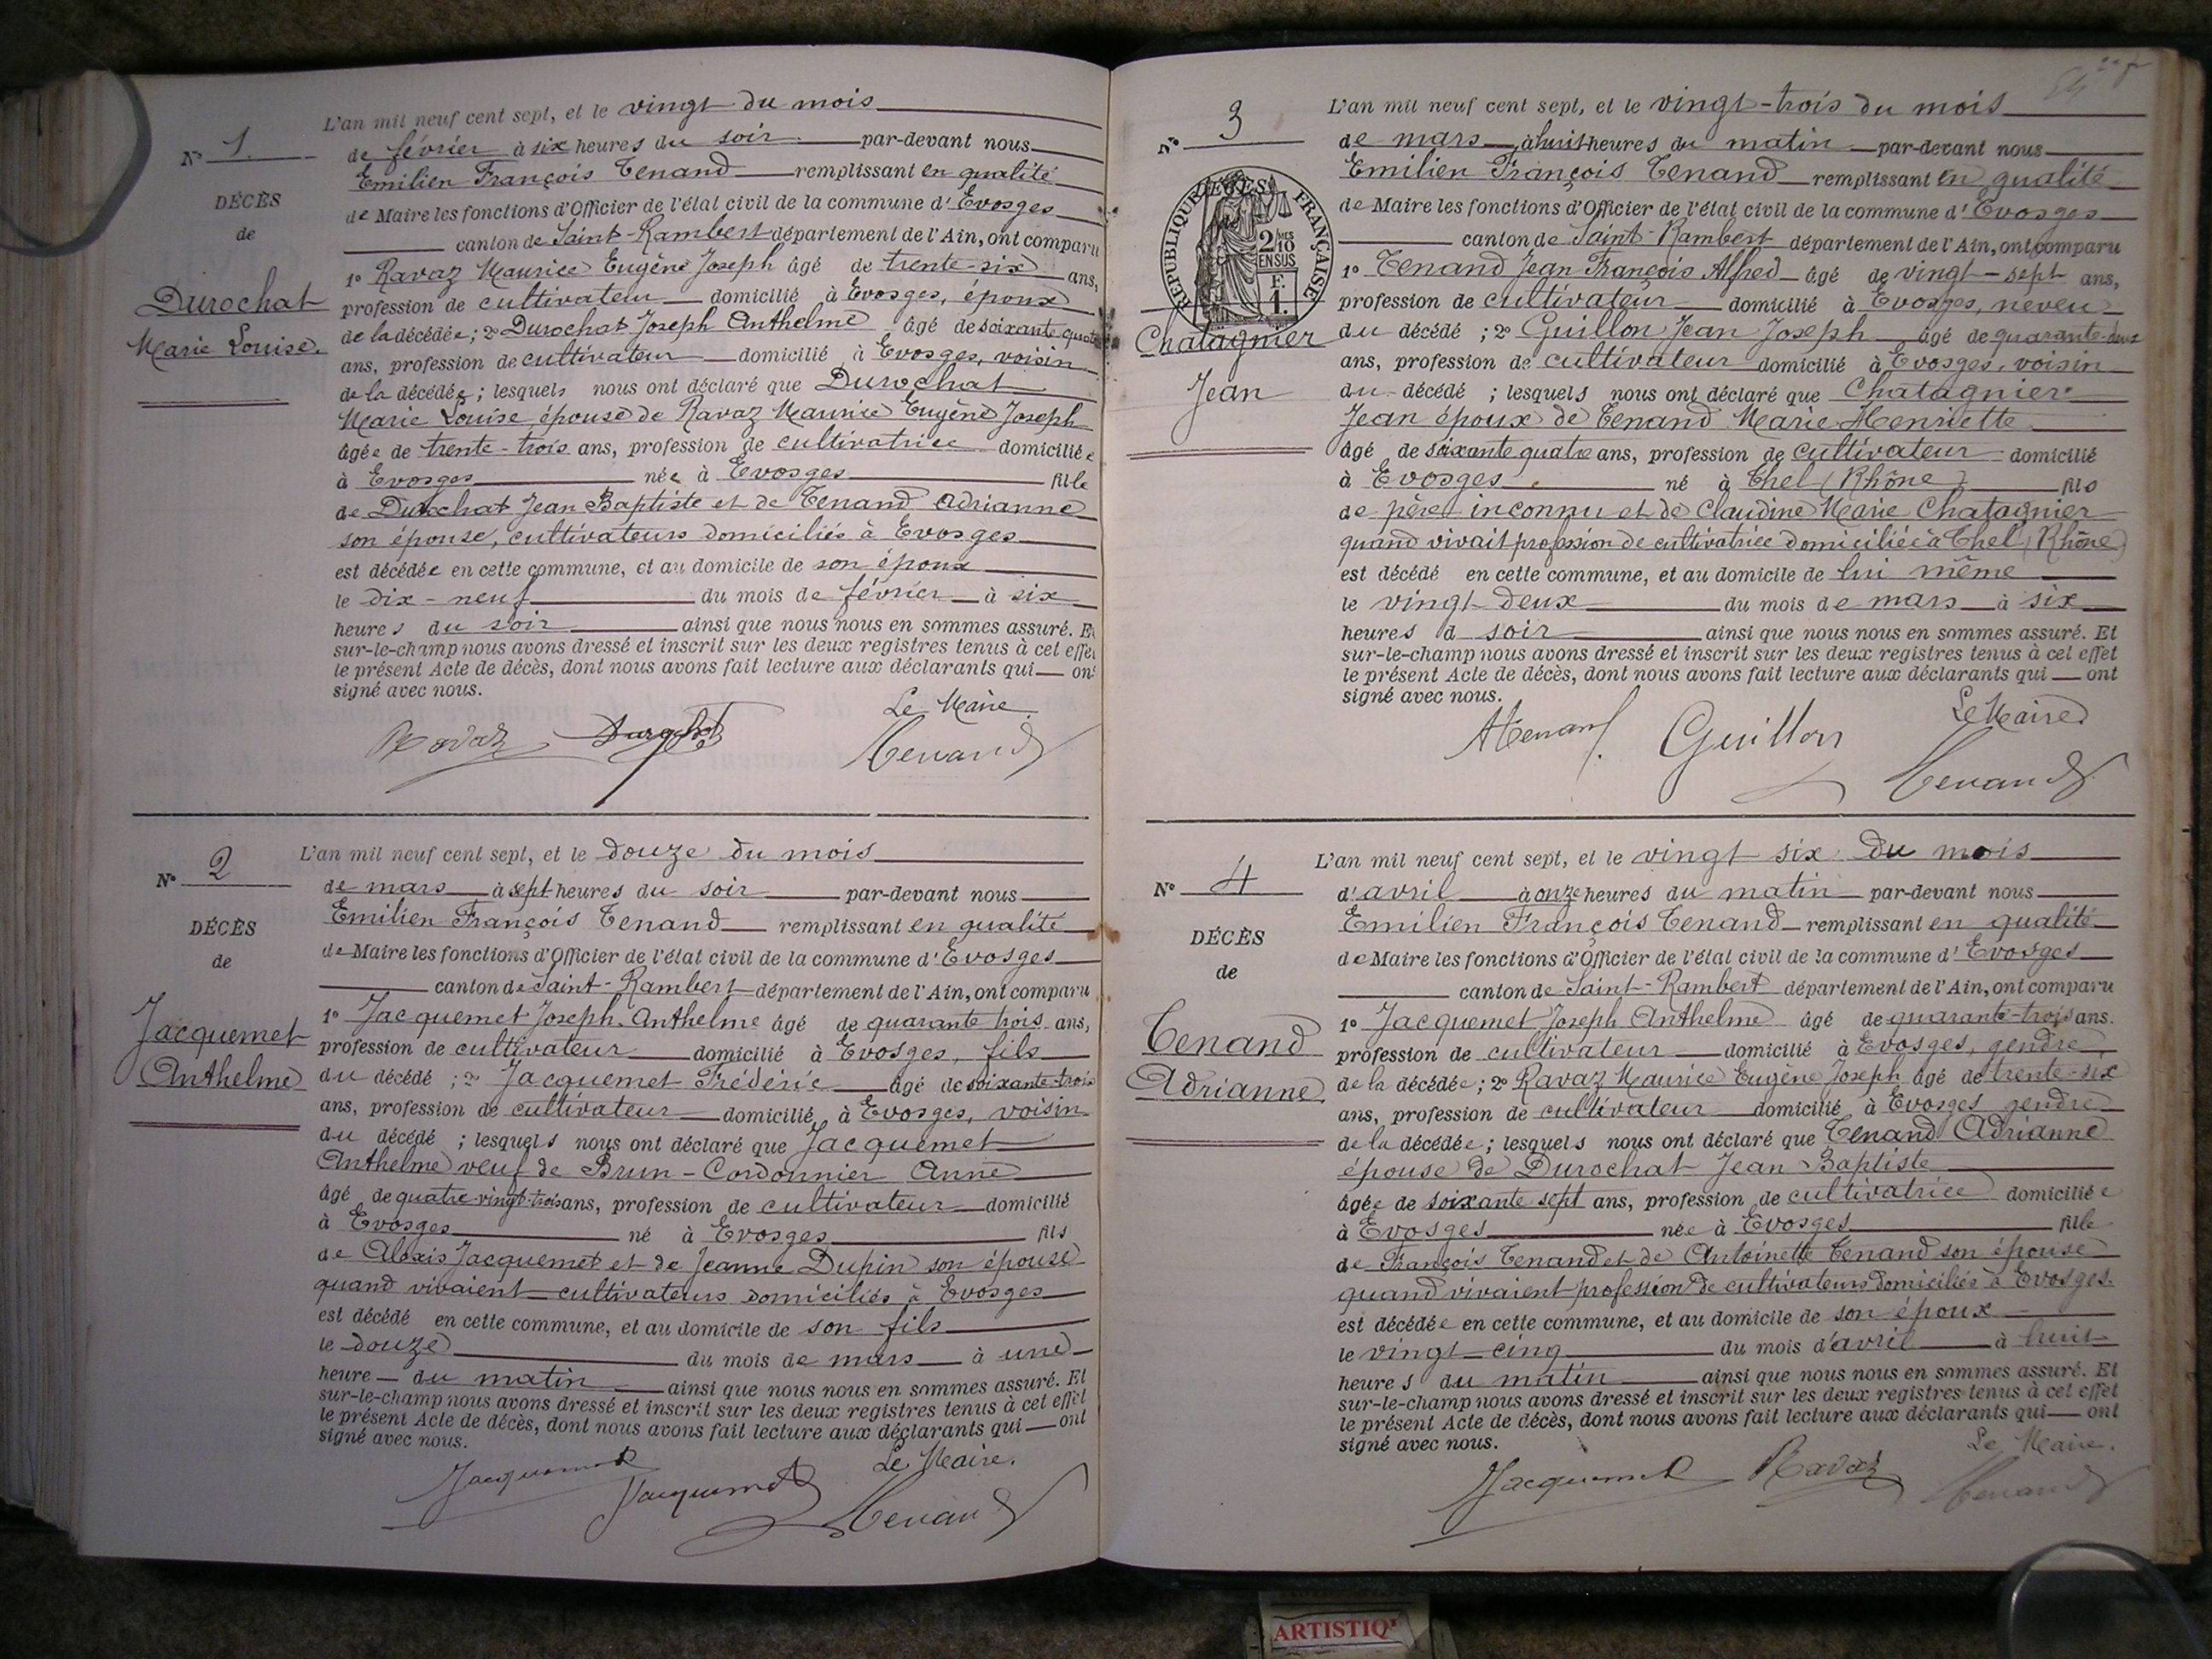 L'an mil neuf cent sept, et le vingt du mois
N° 1.
de février à six heures du soir par-devant nous
Emilien François Tenand remplissant en qualité
DÉCÈS
de Maire les fonctions d'Officier de l'état civil de la commune d'Evosges
de
canton de Saint-Rambert département de l'Ain, ont comparu
1° Ravaz Maurice Eugène Joseph âgé de trente-six ans,
Durochat
profession de cultivateur domicilié à Evosges, époux
Marie Louise.
de la décédée; 2° Durochat Joseph Anthelme âgé de soixante quatre
ans, profession de cultivateur domicilié à Evosges, voisin
de la décédée; lesquels nous ont déclaré que Durochat
Marie Louise épouse de Ravaz Maurice Eugène Joseph
âgée de trente-trois ans, profession de cultivatrice domiciliée
à Evosges née à Evosges fille
de Durochat Jean Baptiste et de Tenand Adrianne
son épouse, cultivateurs domiciliés à Evosges
est décédée en cette commune, et au domicile de son époux
le dix-neuf du mois de février à six
heures du soir ainsi que nous nous en sommes assuré. Et
sur-le-champ nous avons dressé et inscrit sur les deux registres tenus à cet effet
le présent Acte de décès, dont nous avons fait lecture aux déclarants qui ont
signé avec nous.
Le Maire.
Ravaz Durochat Tenand
L'an mil neuf cent sept, et le douze du mois
N° 2
de mars à sept heures du soir par-devant nous
Emilien François Tenand remplissant en qualité
DÉCÈS
de Maire les fonctions d'Officier de l'état civil de la commune d'Evosges
de
canton de Saint-Rambert département de l'Ain, ont comparu
1° Jacquemet Joseph Anthelme âgé de quarante trois ans,
Jacquemet
profession de cultivateur domicilié à Evosges, fils
Anthelme
du décédé ; 2° Jacquemet Frédéric âgé de soixante-trois
ans, profession de cultivateur domicilié à Evosges, voisin
du décédé ; lesquels nous ont déclaré que Jacquemet
Anthelme veuf de Brun-Cordonnier Anne
âgé de quatre-vingt-trois ans, profession de cultivateur domicilié
à Evosges né à Evosges fils
de Alexis Jacquemet et de Jeanne Dupin son épouse
quand vivaient cultivateurs domiciliés à Evosges
est décédé en cette commune, et au domicile de son fils
le douze du mois de mars à une
heure du matin ainsi que nous nous en sommes assuré. Et
sur-le-champ nous avons dressé et inscrit sur les deux registres tenus à cet effet
le présent Acte de décès, dont nous avons fait lecture aux déclarants qui ont
signé avec nous.
Le Maire.
Jacquemet Jacquemet Tenand
L'an mil neuf cent sept, et le vingt-trois du mois
N° 3
de mars à huit heures du matin par-devant nous
Emilien François Tenand remplissant en qualité
RÉPUBLIQUE FRANÇAISE
2/10 MES
EN SUS
F.
1.
de Maire les fonctions d'Officier de l'état civil de la commune d'Evosges
canton de Saint-Rambert département de l'Ain, ont comparu
1° Tenand Jean François Alfred âgé de vingt-sept ans,
profession de cultivateur domicilié à Evosges, neveu
Chatagnier
du décédé ; 2° Guillon Jean Joseph âgé de quarante-deux
ans, profession de cultivateur domicilié à Evosges, voisin
Jean
du décédé ; lesquels nous ont déclaré que Chatagnier
Jean époux de Tenand Marie Henriette
âgé de soixante quatre ans, profession de cultivateur domicilié
à Evosges né à Thel (Rhône) fils
de père inconnu et de Claudine Marie Chatagnier
quand vivait profession de cultivatrice domiciliée à Thel (Rhône)
est décédé en cette commune, et au domicile de lui même
le vingt-deux du mois de mars à six
heures d soir ainsi que nous nous en sommes assuré. Et
sur-le-champ nous avons dressé et inscrit sur les deux registres tenus à cet effet
le présent Acte de décès, dont nous avons fait lecture aux déclarants qui ont
signé avec nous.
Le Maire
ATenand Guillon Tenand
L'an mil neuf cent sept, et le vingt six du mois
N° 4
d'avril à onze heures du matin par-devant nous
Emilien François Tenand remplissant en qualité
DÉCÈS
de Maire les fonctions d'Officier de l'état civil de la commune d'Evosges
de
canton de Saint-Rambert département de l'Ain, ont comparu
1° Jacquemet Joseph Anthelme âgé de quarante-trois ans.
Tenand
profession de cultivateur domicilié à Evosges, gendre
Adrianne.
de la décédée; 2° Ravaz Maurice Eugène Joseph âgé de trente-six
ans, profession de cultivateur domicilié à Evosges gendre
de la décédée; lesquels nous ont déclaré que Tenand Adrianne
épouse de Durochat Jean-Baptiste
âgée de soixante sept ans, profession de cultivatrice domiciliée
à Evosges née à Evosges fille
de François Tenand et de Antoinette Tenand son épouse
quand vivaient profession de cultivateurs domiciliés à Evosges.
est décédée en cette commune, et au domicile de son époux
le vingt-cinq du mois d'avril à huit
heures du matin ainsi que nous nous en sommes assuré. Et
sur-le-champ nous avons dressé et inscrit sur les deux registres tenus à cet effet
le présent Acte de décès, dont nous avons fait lecture aux déclarants qui ont
signé avec nous.
Le Maire.
Jacquemet Ravaz Tenand
ARTISTIQ